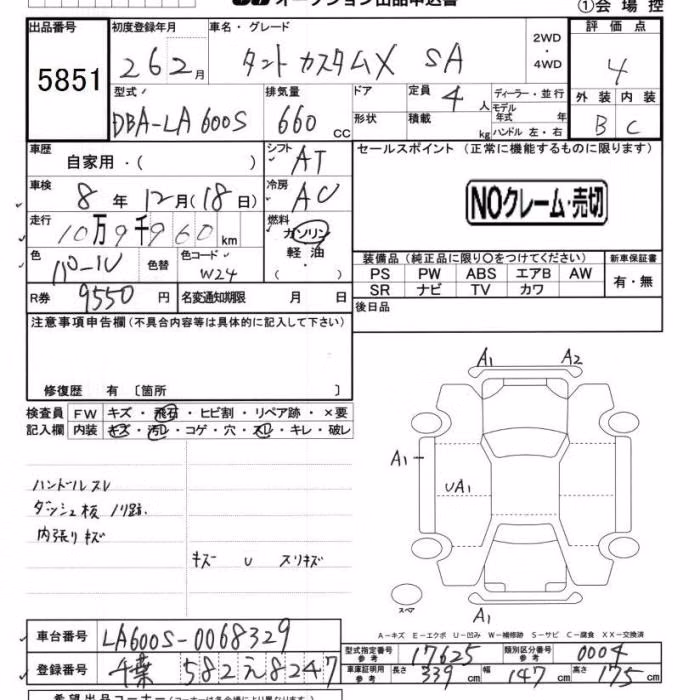 オークション出品申込書
①会場控
出品番号
5851
初度登録年月
26 2月
車名・グレード
タントカスタムX SA
2WD
・
4WD
評価点
4
外装 内装
B C
型式
DBA-LA600S
排気量
660 cc
ドア
形状
定員 4 人
積載 kg
ディーラー・並行
モデル年式 年
ハンドル 左・右
車歴
自家用・( )
シフト
AT
セールスポイント (正常に機能するものに限ります)
NOクレーム・売切
車検
8年12月(18日)
冷房
AC
走行
10万9千960km
燃料
ガソリン
軽油
・
( )
色
パール
色替
色コード
W24
R券 9550円
名変通知期限 月 日
装備品 (純正品に限り〇をつけてください)
PS PW ABS エアB AW
SR ナビ TV カワ
新車保証書
有・無
後日品
注意事項申告欄(不具合内容等は具体的に記入して下さい)
修復歴 有 〔箇所 〕
検査員 FW キズ・飛石・ヒビ割・リペア跡・×要
記入欄 内装 キズ・汚レ・コゲ・穴・スレ・キレ・破レ
ハンドルスレ
ダッシュ板 ノリ跡.
内張りキズ
キズ U スリキズ
A1 A2
A1
UA1
A1
スペア
A-キズ E-エクボ U-凹み W-補修跡 S-サビ C-腐食 XX-交換済
車台番号 LA600S-0068329
登録番号 千葉 582 え 8247
型式指定番号 参考 17625 類別区分番号 参考 0004
車庫証明用 参考 長さ 339cm 幅 147cm 高さ 175cm
希望出品コーナー